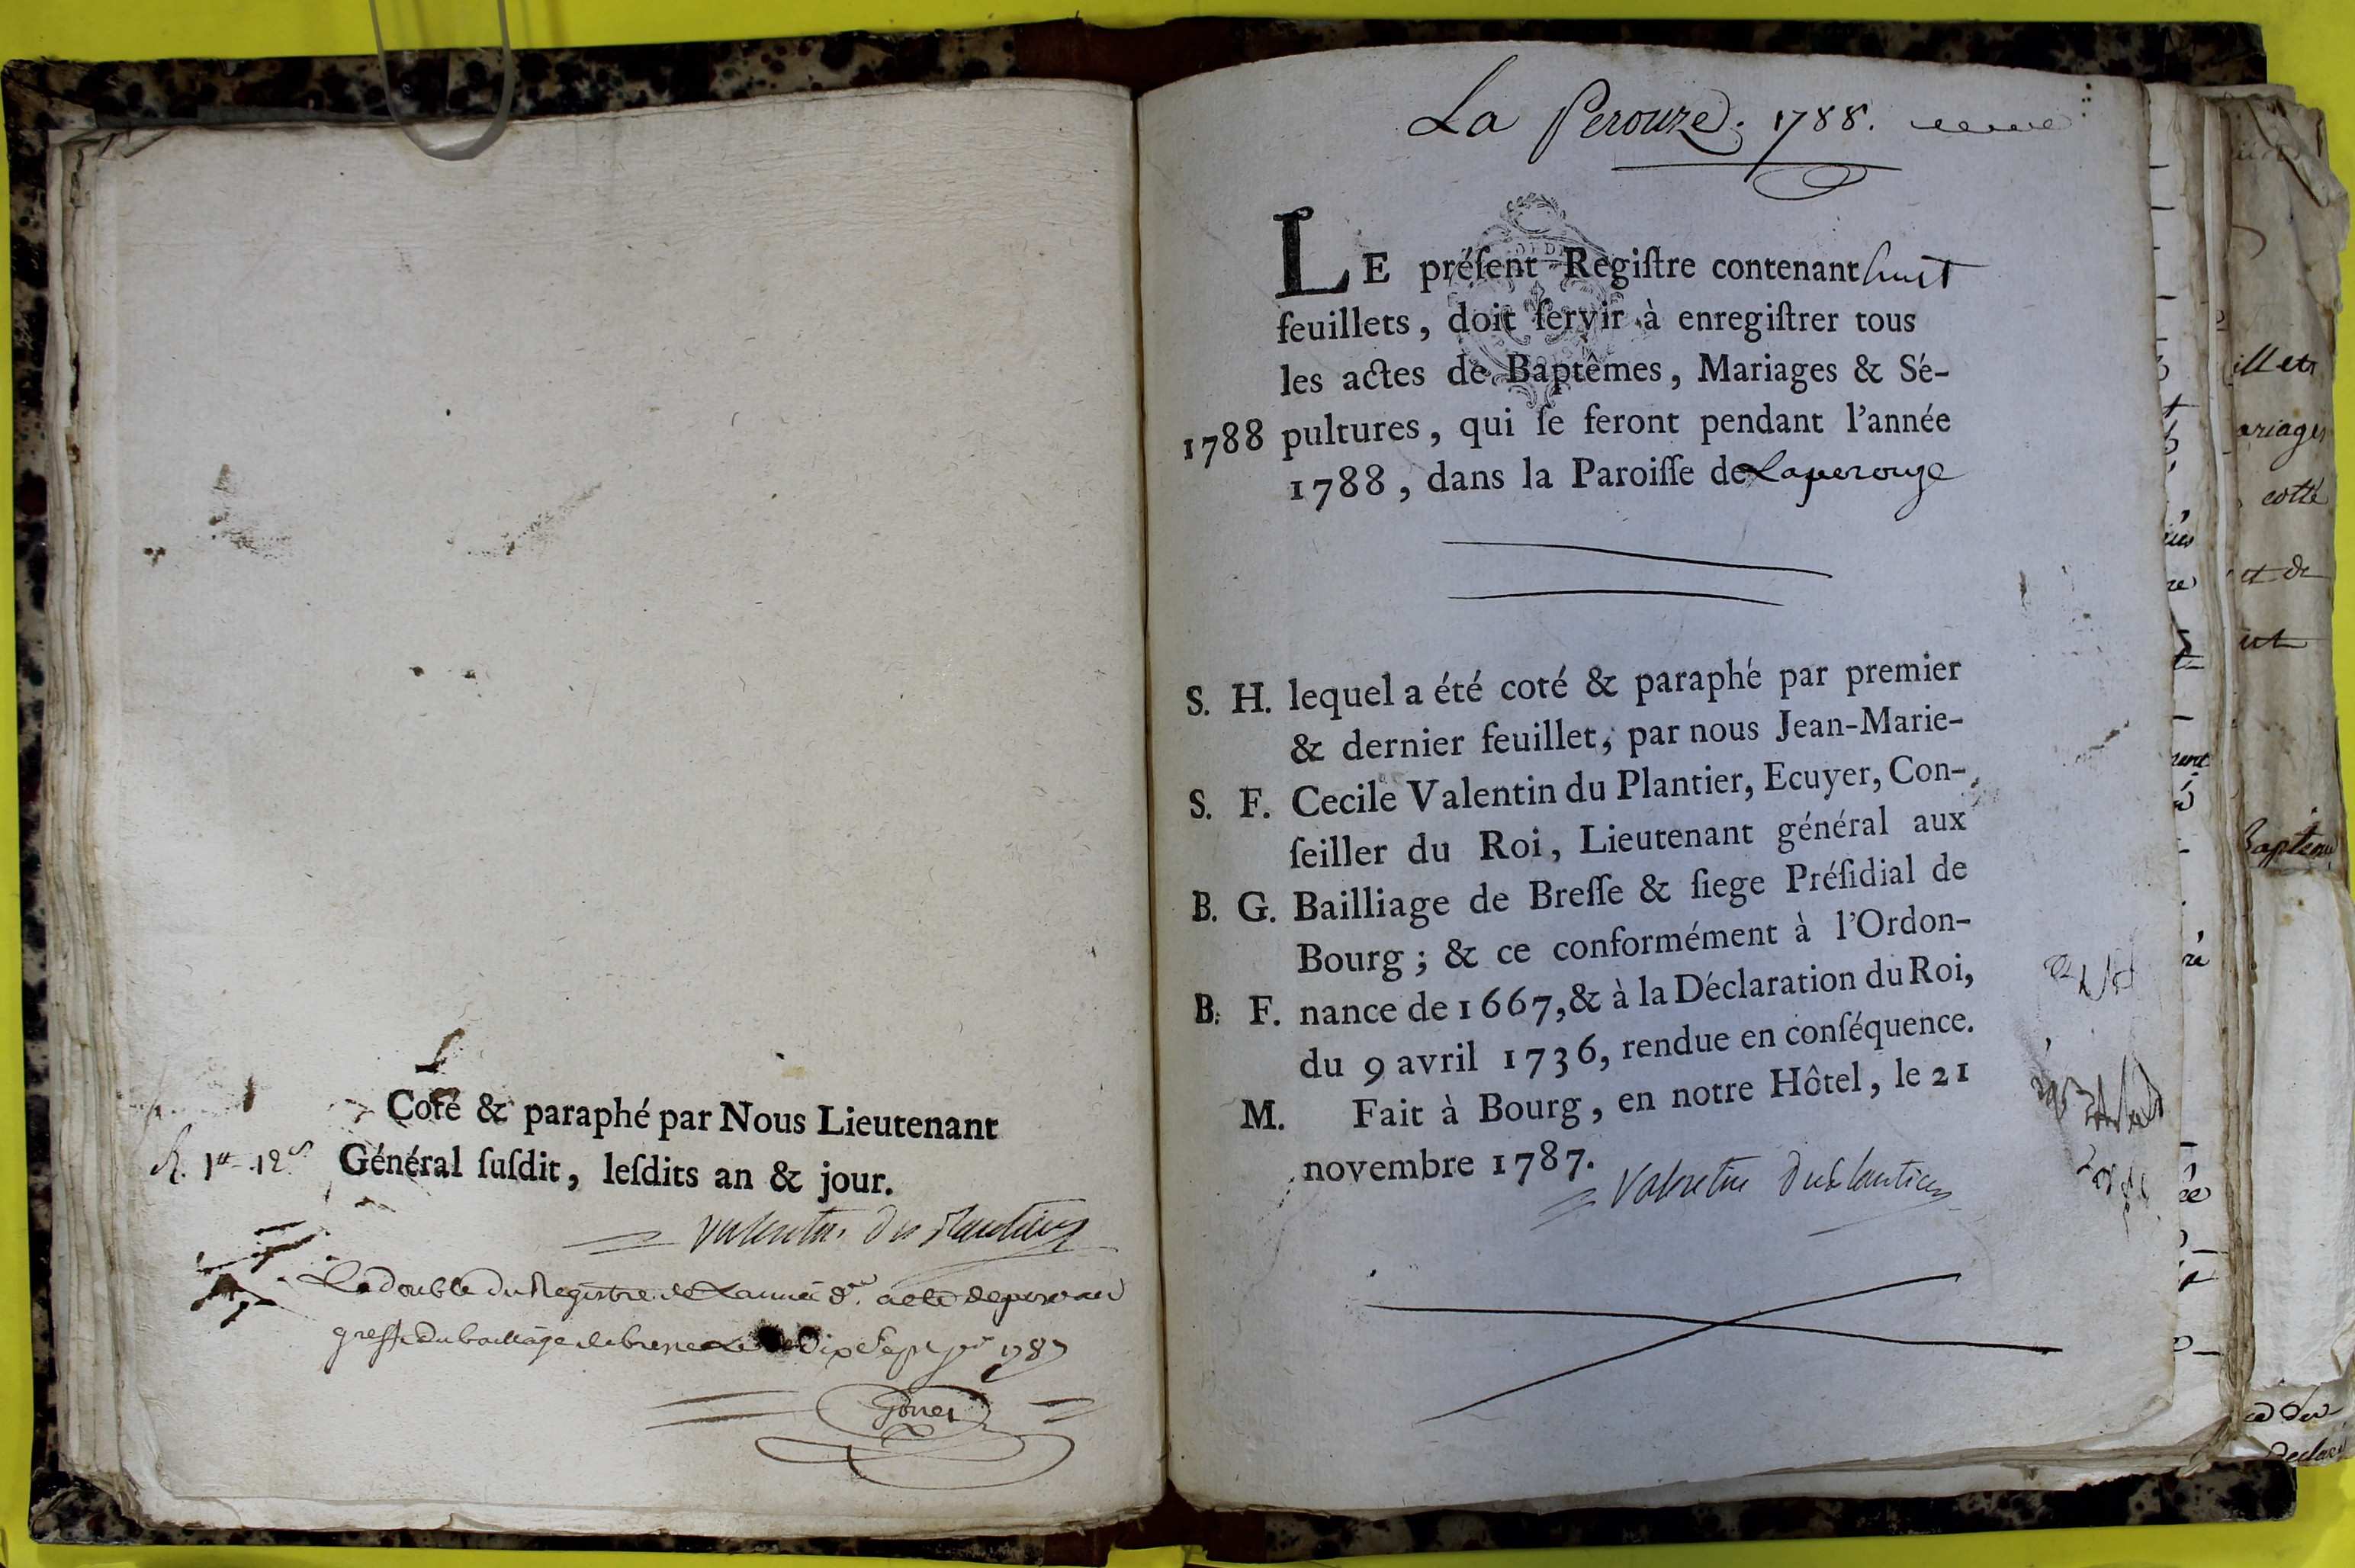 Coté & paraphé par Nous Lieutenant
R. 1ᵗᵗ 12ˢ Général ſuſdit, leſdits an & jour.
Valentin Du Plantier
Le double du Registre de Lannée dʳᵉ a eté deposé au
greffe du bailliage de bresse Le dix Sept 1787
La Perouze. 1788.
LE préſent Regiſtre contenant huit
feuillets, doit ſervir à enregiſtrer tous
les actes de Baptêmes, Mariages & Sé-
1788 pultures, qui ſe feront pendant l'année
1788, dans la Paroiſſe de Laperouze
S. H. lequel a été coté & paraphé par premier
& dernier feuillet, par nous Jean-Marie-
S. F. Cecile Valentin du Plantier, Ecuyer, Con-
ſeiller du Roi, Lieutenant général aux
B. G. Bailliage de Breſſe & ſiege Préſidial de
Bourg ; & ce conformément à l'Ordon-
B. F. nance de 1667, & à la Déclaration du Roi,
du 9 avril 1736, rendue en conſéquence.
M. Fait à Bourg, en notre Hôtel, le 21
novembre 1787.
Valentin Du Plantier
illets
ariages
cotté
et de
Baptem